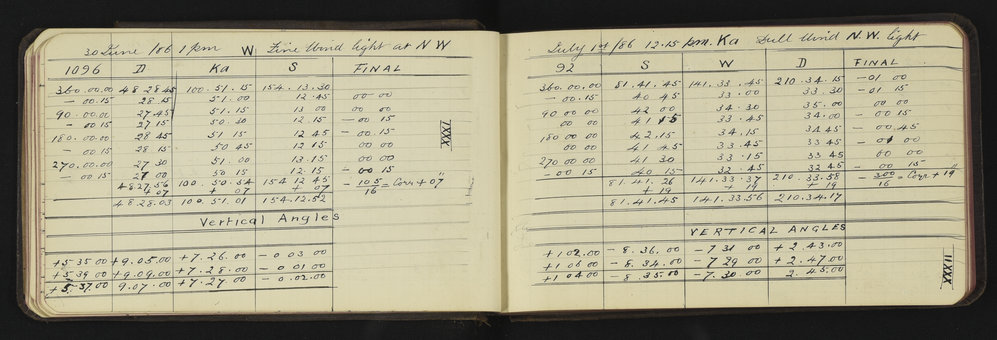 30 June /86 1 pm W Fine Wind light at N W
1096 D Ka S FINAL
360.00.00 48 28 45 100.51.15 154.13.30
- 00.15 28 15 51.00 12.45 00 00
90.00.00 27 45 51.15 13 00 00 00
- 00 15 27 15 50.30 12.15 - 00 15
180.00.00 28 45 51 15 12 45 - 00 15
- 00 15 28 15 50 45 12 15 00 00
270.00.00 27 30 51.00 13.15 00 00
- 00 15 27 00 50 15 12.15 - 00 15
48 27.56 100.50.54 154 12 45 - 105/16 = Corr + 07"
+ 07 + 07 + 07
48 28.03 100.51.01 154.12.52
Vertical Angles
+5 35 00 +9.05.00 +7.26.00 - 0 03 00
+5 39 00 +9.09.00 +7.28.00 - 0 01 00
+5.37.00 9.07.00 +7.27 00 - 0.02.00
LXXXI
July 1st /86 12.15 pm. Ka Dull Wind N.W. light
92 S W D FINAL
360.00.00 81.41.45 141.33.45 210.34.15 - 01 00
- 00.15 40 45 33.00 33.30 - 01 15
90 00 00 42 00 34.30 35.00 00 00
00 00 41 15 33.45 34.00 - 00 15
180 00 00 42.15 34.15 34 45 - 00.45
00 00 41 45 33.45 33 45 00
270 00 00 41 30 33.15 33 45 00 00
- 00 15 40 15 32 45 32 45 - 00 15
81.41.26 141.33.37 210.33.58 - 300/16 = Corr + 19"
+ 19 + 19 + 19
81.41.45 141.33.56 210.34.17
VERTICAL ANGLES
+1 02.00 - 8.36.00 - 7 31 00 + 2.43.00
+1 06 00 - 8.34.00 - 7 29 00 + 2.47.00
+1 04 00 - 8 35.00 - 7.30.00 2.45.00